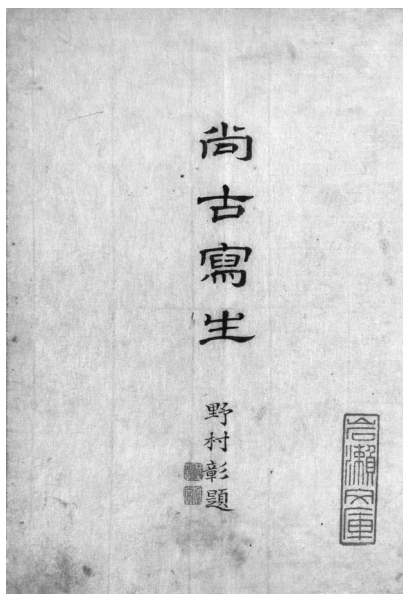 尚古寫生
野村彰題
岩瀬文庫